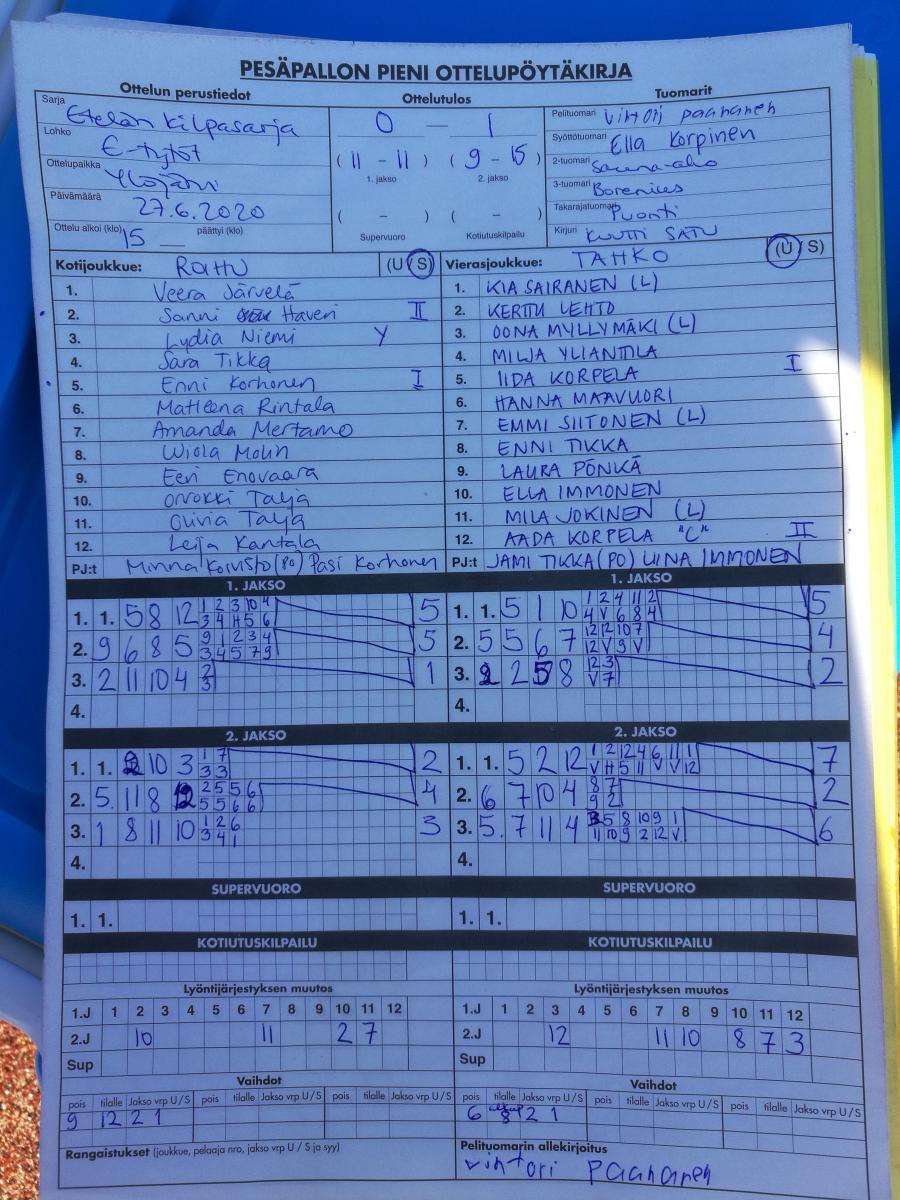 PESÄPALLON PIENI OTTELUPÖYTÄKIRJA
Ottelun perustiedot
Sarja Etelän kilpasarja
Lohko E-tytöt
Ottelupaikka Ylöjärvi
Päivämäärä 27.6.2020
Ottelu alkoi (klo) 15 päättyi (klo)
Ottelutulos
0 — 1
( 11 - 11 ) ( 9 - 15 )
1. jakso 2. jakso
( - ) ( - )
Supervuoro Kotiutuskilpailu
Tuomarit
Pelituomari Vihtori paananen
Syöttötuomari Ella Korpinen
2-tuomari Sauna-aho
3-tuomari Borenius
Takarajatuomari Puonti
Kirjuri KUUTTI SATU
Kotijoukkue: RaHu (U S)
1. Veera Järvelä
2. Sanni Haveri II
3. Lydia Niemi Y
4. Sara Tikka
5. Enni Korhonen I
6. Matleena Rintala
7. Amanda Mertamo
8. Wiola Molin
9. Eeri Enovaara
10. Orvokki Talja
11. Olivia Talja
12. Leija Kantala
PJ:t Minna Koivisto (PO) Pasi Korhonen
Vierasjoukkue: TAHKO (U S)
1. KIA SAIRANEN (L)
2. KERTTU LEHTO
3. OONA MYLLYMÄKI (L)
4. MILJA YLIANTTILA
5. IIDA KORPELA I
6. HANNA MAAVUORI
7. EMMI SIITONEN (L)
8. ENNI TIKKA
9. LAURA PÖNKÄ
10. ELLA IMMONEN
11. MILA JOKINEN (L)
12. AADA KORPELA "C" II
PJ:t JAMI TIKKA (PO) LIINA IMMONEN
1. JAKSO
1. 1. 5 8 12 1 2 3 10 4 5
3 4 H 5 6
2. 9 6 8 5 9 1 2 3 4 5
3 4 5 7 9
3. 2 11 10 4 2 1
3
4.
1. JAKSO
1. 1. 5 1 10 1 2 4 11 2 5
4 V 6 8 4
2. 5 5 6 7 12 12 10 7 4
12 V 9 V
3. 2 2 5 8 12 3 2
V 7
4.
2. JAKSO
1. 1. 2 10 3 1 7 2
3 3
2. 5. 11 8 12 2 5 5 6 4
5 5 6 6
3. 1 8 11 10 1 2 6 3
3 4 1
4.
2. JAKSO
1. 1. 5 2 12 1 2 12 4 6 11 1 7
V H 5 11 V V 12
2. 6 7 10 4 8 7 2
9 2
3. 5. 7 11 4 3 5 8 10 9 1 6
11 10 9 2 12 V
4.
SUPERVUORO
1. 1.
SUPERVUORO
1. 1.
KOTIUTUSKILPAILU
KOTIUTUSKILPAILU
Lyöntijärjestyksen muutos
1.J 1 2 3 4 5 6 7 8 9 10 11 12
2.J 10 11 2 7
Sup
Lyöntijärjestyksen muutos
1.J 1 2 3 4 5 6 7 8 9 10 11 12
2.J 12 11 10 8 7 3
Sup
Vaihdot
pois tilalle Jakso vrp U / S pois tilalle Jakso vrp U / S pois tilalle Jakso vrp U / S
9 12 2 1
Vaihdot
pois tilalle Jakso vrp U / S pois tilalle Jakso vrp U / S pois tilalle Jakso vrp U / S
6 8 2 1
Rangaistukset (joukkue, pelaaja nro, jakso vrp U / S ja syy)
Pelituomarin allekirjoitus
vihtori paananen